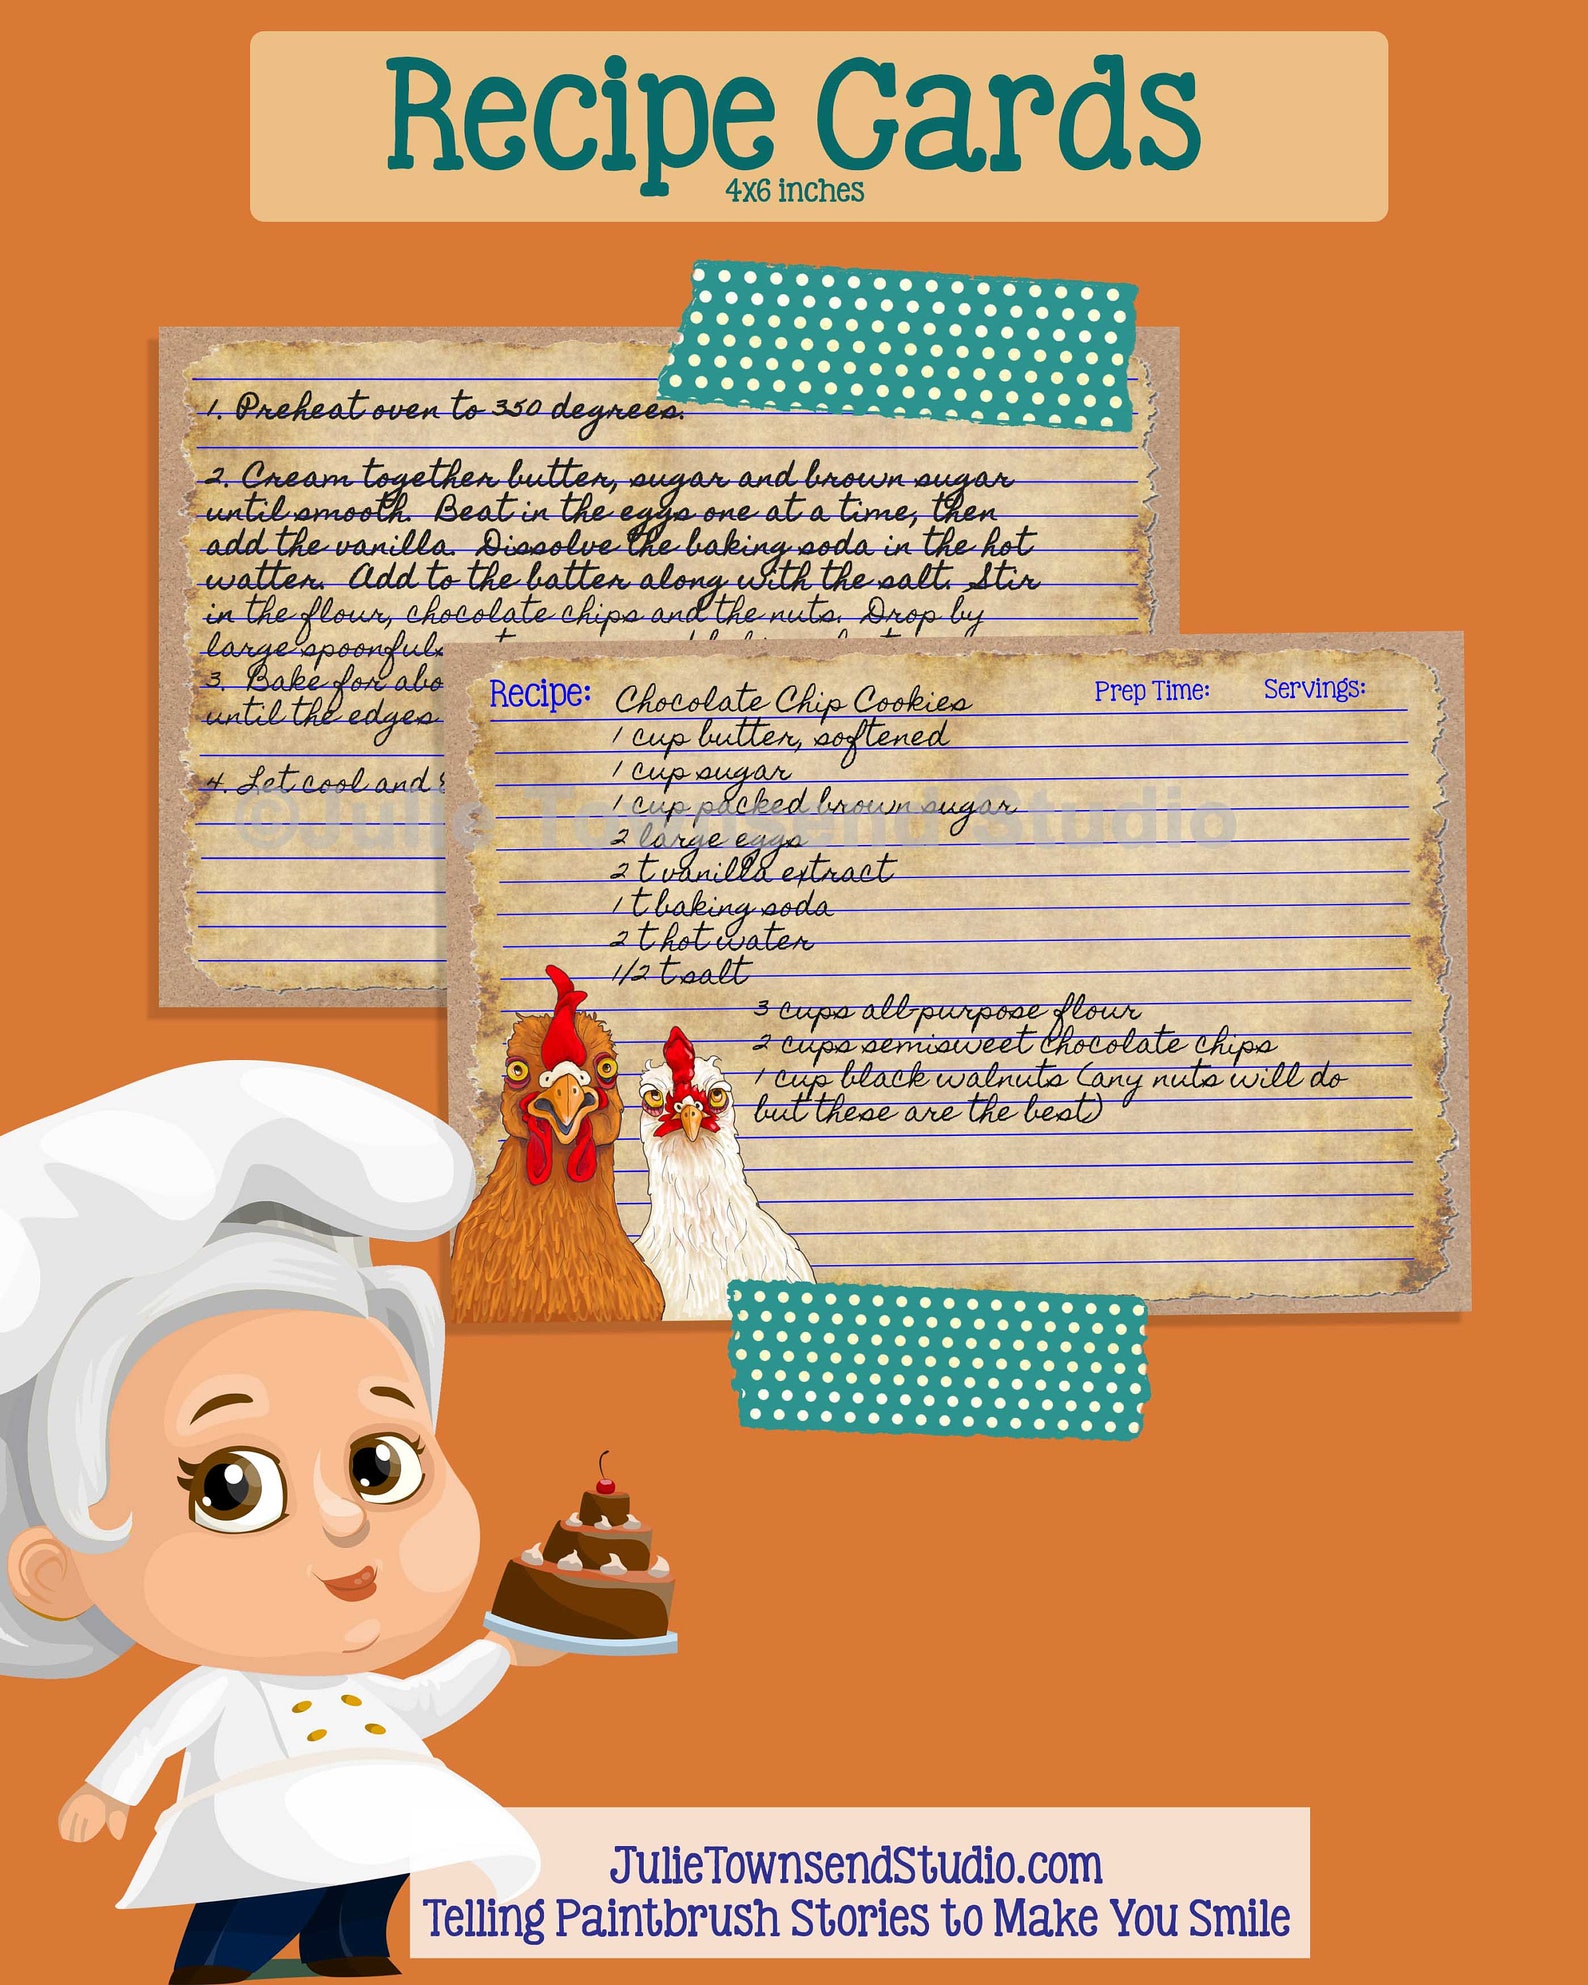 Recipe Cards
4x6 inches
1. Preheat oven to 350 degrees.
2. Cream together butter, sugar and brown sugar
until smooth. Beat in the eggs one at a time, then
add the vanilla. Dissolve the baking soda in the hot
watter. Add to the batter along with the salt. Stir
in the flour, chocolate chips and the nuts. Drop by
large spoonfuls
3. Bake for abo
until the edges
4. Let cool and
Recipe: Chocolate Chip Cookies Prep Time: Servings:
1 cup butter, softened
1 cup sugar
1 cup packed brown sugar
2 large eggs
2 t vanilla extract
1 t baking soda
2 t hot water
1/2 t salt
3 cups all-purpose flour
2 cups semisweet chocolate chips
1 cup black walnuts (any nuts will do
but these are the best)
©Julie Townsend Studio
JulieTownsendStudio.com
Telling Paintbrush Stories to Make You Smile